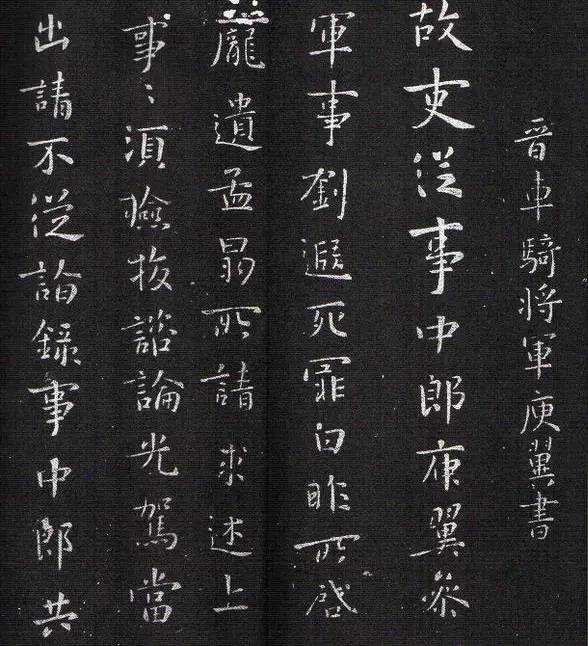 晉車騎將軍庾翼書
故吏從事中郎庾翼參
軍事劉遐死罪白昨所啓
龐遺孟昌所請求述上
事〻須檢校諮論光駕當
出請不從論錄事中郎共